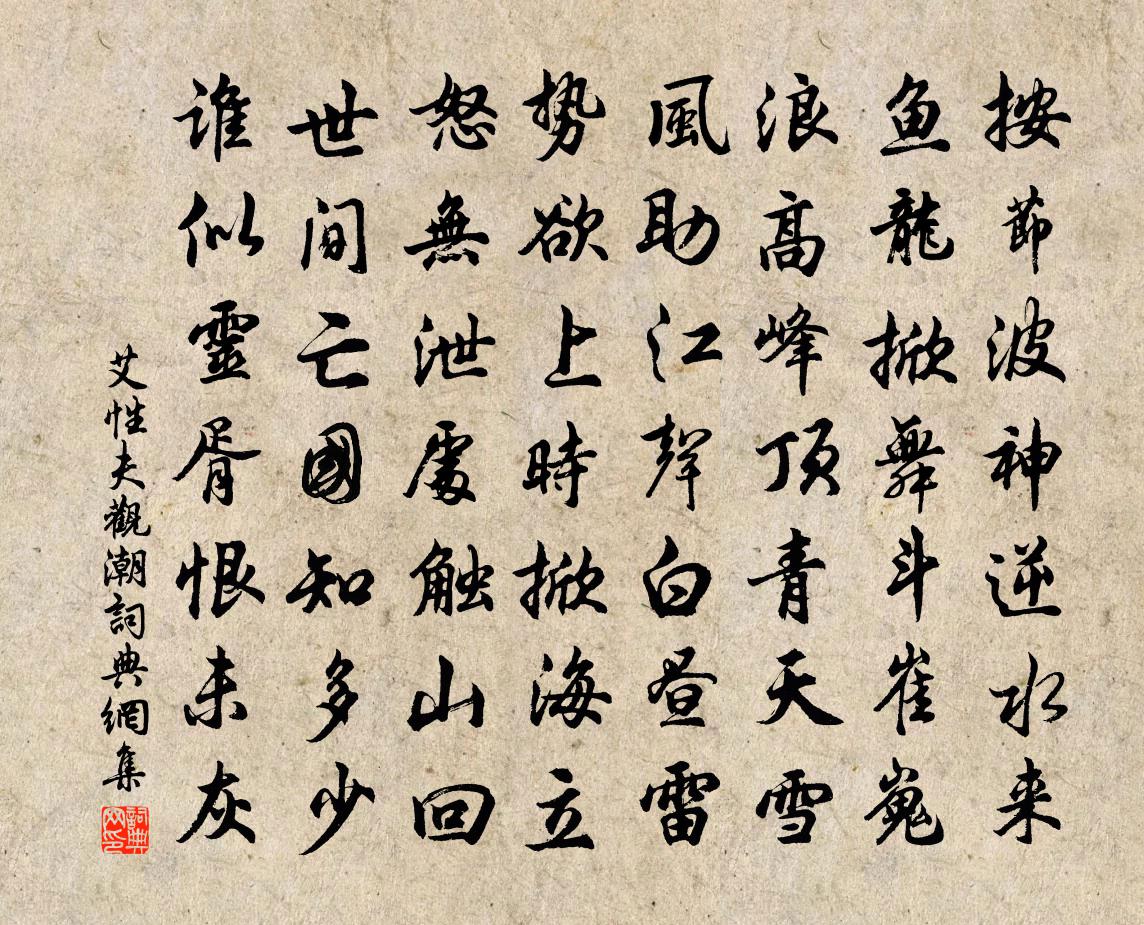 按節波神逆水来
鱼龍掀舞斗崔嵬
浪高峰顶青天雪
風助江聲白昼雷
势欲上時掀海立
怒無泄處触山回
世间亡國知多少
谁似靈胥恨未灰
艾性夫觀潮詞典網集
詞典网印